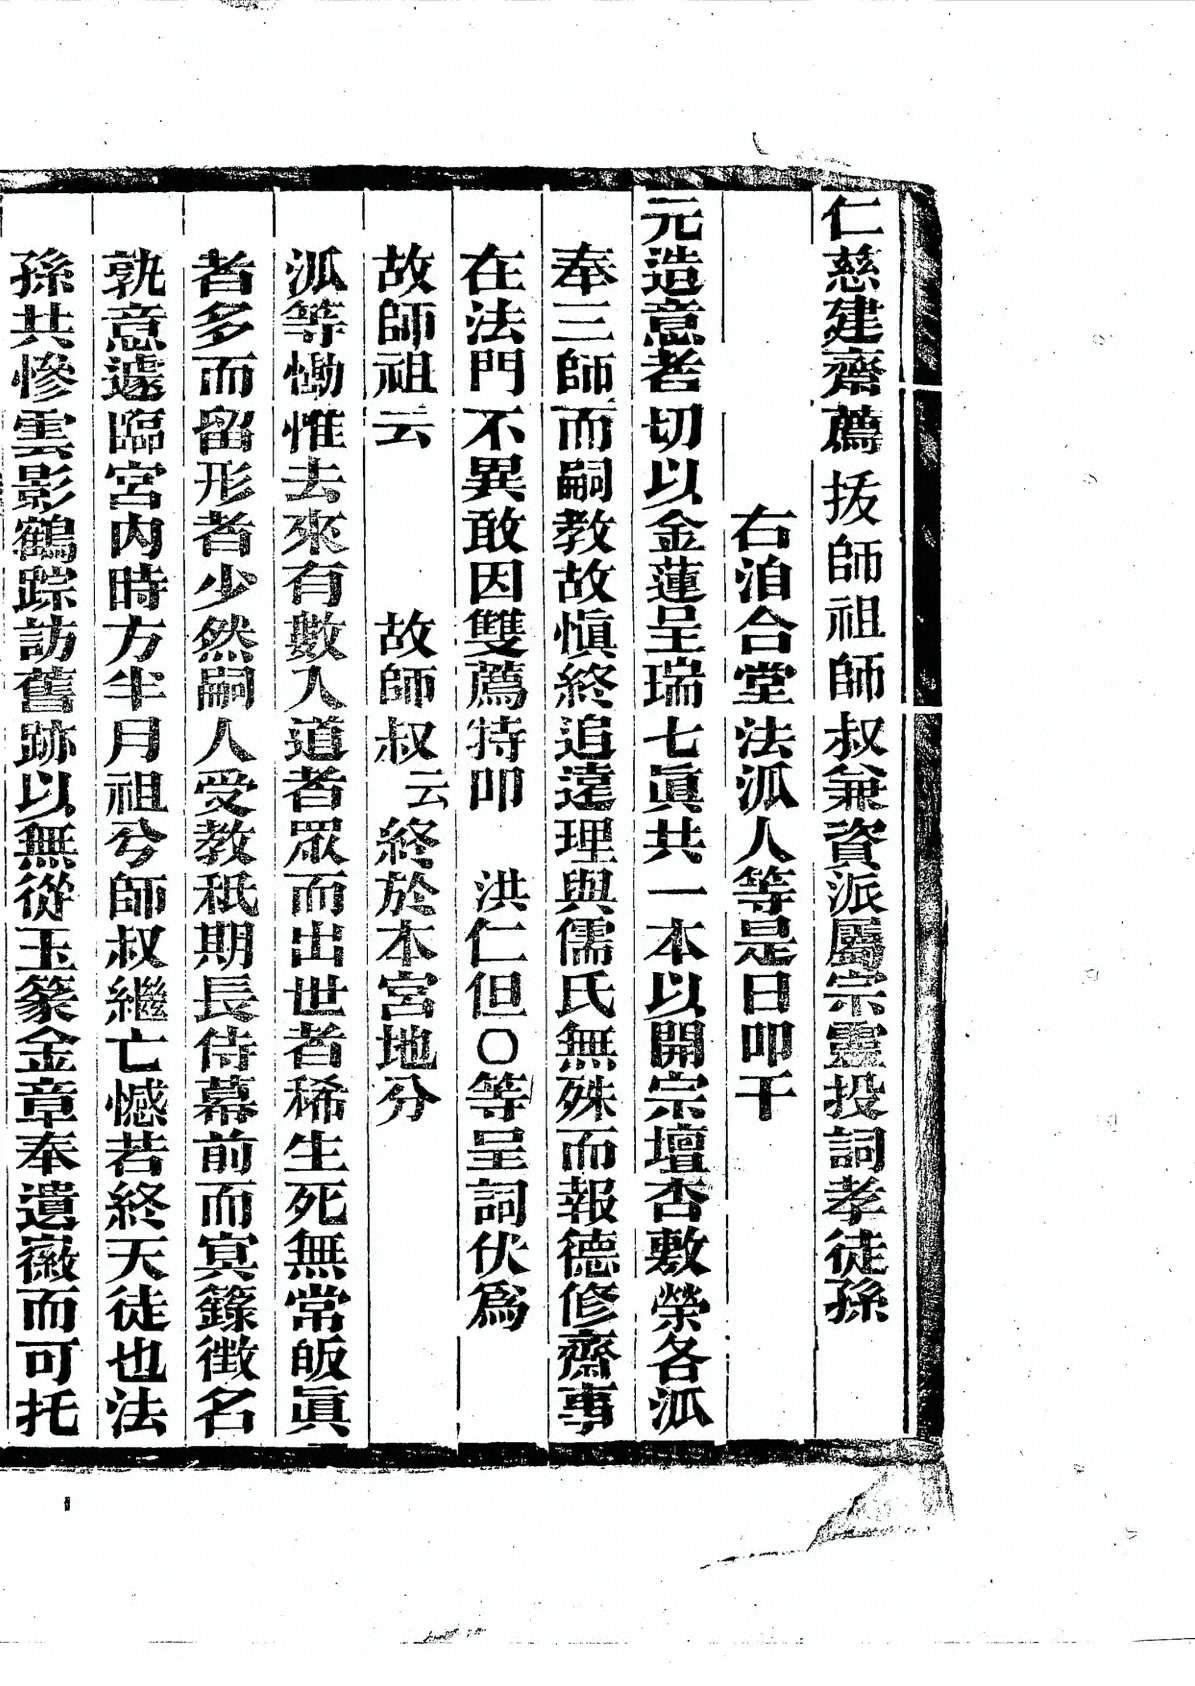 仁慈建齋薦拔師祖師叔兼資派屬宗靈投詞孝徒孫
右洎合堂法派人等是日叩干
元造意者切以金蓮呈瑞七眞共一本以開宗壇杏敷榮各派
奉三師而嗣教故愼終追遠理與儒氏無殊而報德修齋事
在法門不異敢因雙薦特叩 洪仁但〇等呈詞伏爲
故師祖云 故師叔云終於本宮地分
派等慟惟去來有數入道者眾而出世者稀生死無常皈眞
者多而留形者少然嗣人受教秖期長侍幕前而冥籙徵名
孰意遽臨宮內時方半月祖兮師叔繼亡憾若終天徒也法
孫共慘雲影鶴踪訪舊跡以無從玉篆金章奉遺徽而可托